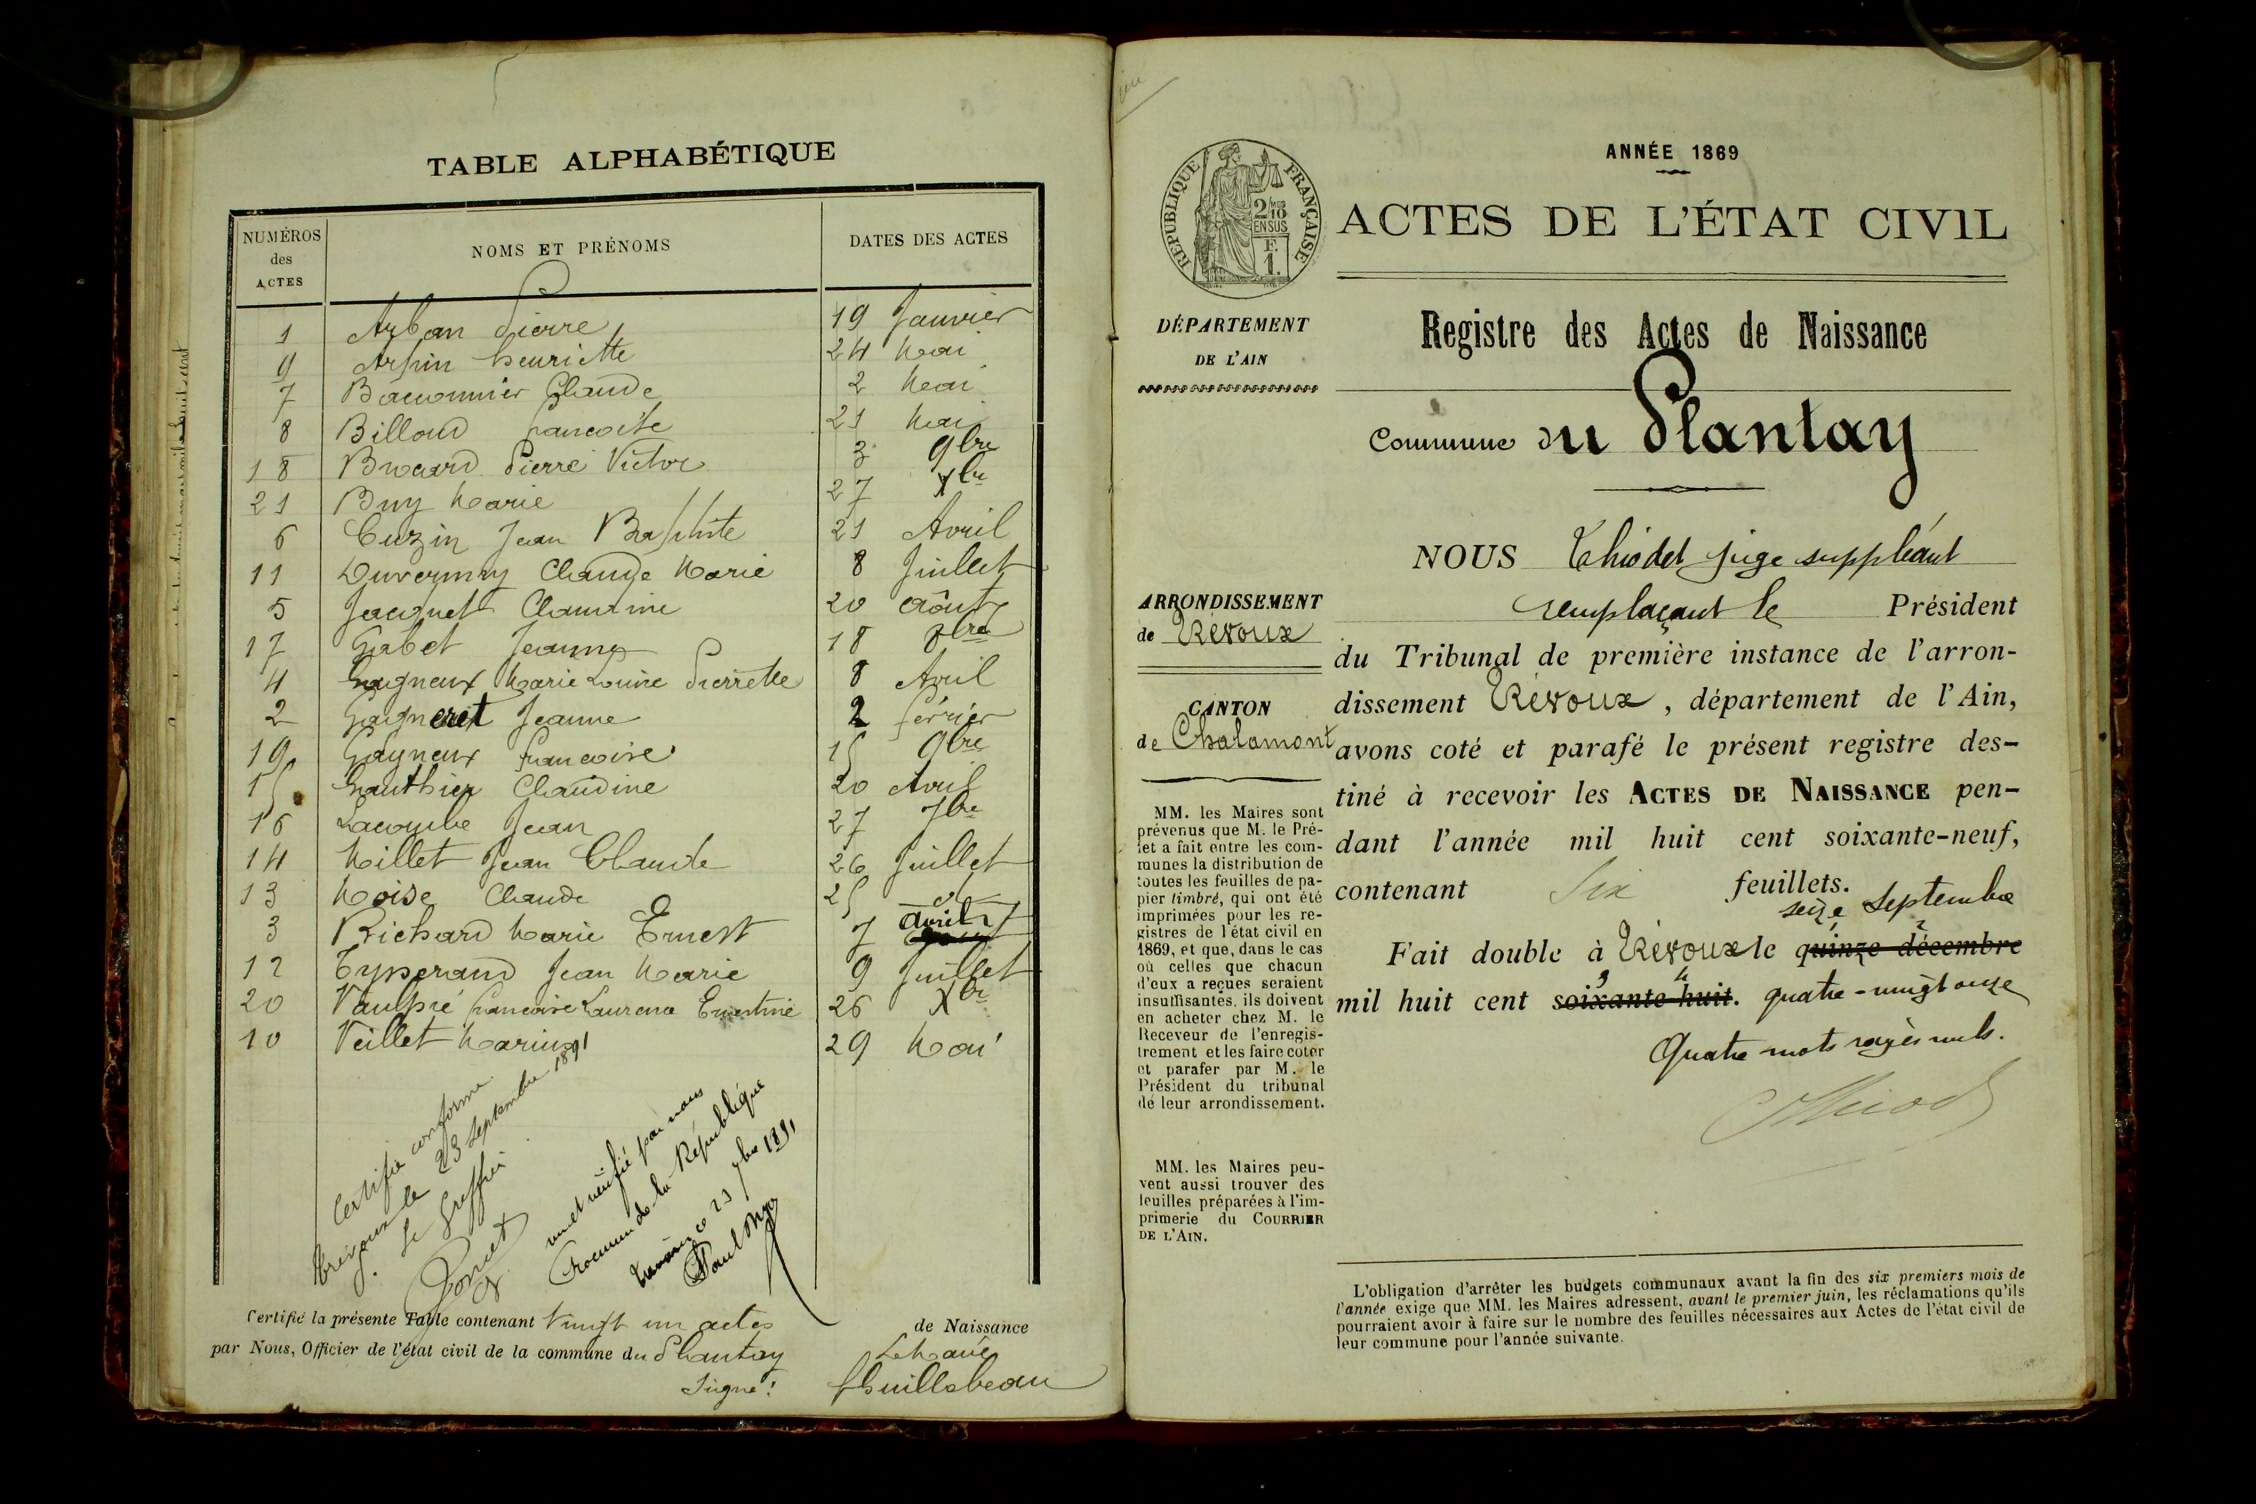 TABLE ALPHABÉTIQUE
NUMÉROS des ACTES NOMS ET PRÉNOMS DATES DES ACTES
1 Arban Pierre 19 Janvier
9 Arpin henriette 24 Mai
7 Baconnier Claude 2 Mai
8 Billoud francoise 21 Mai
18 Brocard Pierre Victor 3 9bre
21 Buy Marie 27 Xbre
6 Cuzin Jean Baptiste 21 Avril
11 Duvernay Claude Marie 8 Juillet
5 Jacquet Claudine 20 Août
17 Gabet Jeanne 18 8bre
4 Gagneux Marie Louise Pierrette 8 Avril
2 Gaigneret Jeanne 2 février
19 Gagneux francoise 15 9bre
15 Gauthier Claudine 20 Avril
16 Lacombe Jean 27 7bre
14 Millet Jean Claude 26 Juillet
13 Moise Claude 25 d°
3 Richard Marie Ernest 7 avril
12 Tysserand Jean Marie 9 Juillet
20 Vaulpré francoise Laurence Ernestine 26 Xbre
10 Veillet Marius 29 Mai
Certifié conforme
Trévoux le 23 Septembre 1891
Le Greffier
vu et vérifié par nous
Procureur de la République
Trévoux ce 23 7bre 1891
Certifié la présente Table contenant Vingt un actes de Naissance
par Nous, Officier de l'état civil de la commune du Plantay Le Maire
Signé: Guillebeau
ANNÉE 1869
RÉPUBLIQUE FRANÇAISE
2/10 EN SUS
F. 1.
ACTES DE L'ÉTAT CIVIL
DÉPARTEMENT
DE L'AIN
Registre des Actes de Naissance
Commune du Plantay
NOUS Thiodet juge suppléant
remplaçant le Président
ARRONDISSEMENT
de Trévoux
du Tribunal de première instance de l'arron-
dissement Trévoux, département de l'Ain,
CANTON
de Chalamont
avons coté et parafé le présent registre des-
tiné à recevoir les ACTES DE NAISSANCE pen-
dant l'année mil huit cent soixante-neuf,
contenant Six feuillets.
seize septembre
Fait double à Trévoux le quinze décembre
mil huit cent soixante-huit. quatre-vingt onze
Quatre mots rayés nuls.
MM. les Maires sont
prévenus que M. le Pré-
fet a fait entre les com-
munes la distribution de
toutes les feuilles de pa-
pier timbré, qui ont été
imprimées pour les re-
gistres de l'état civil en
1869, et que, dans le cas
où celles que chacun
d'eux a reçues seraient
insuffisantes, ils doivent
en acheter chez M. le
Receveur de l'enregis-
trement et les faire coter
et parafer par M. le
Président du tribunal
de leur arrondissement.
MM. les Maires peu-
vent aussi trouver des
feuilles préparées à l'im-
primerie du COURRIER
DE L'AIN.
L'obligation d'arrêter les budgets communaux avant la fin des six premiers mois de
l'année exige que MM. les Maires adressent, avant le premier juin, les réclamations qu'ils
pourraient avoir à faire sur le nombre des feuilles nécessaires aux Actes de l'état civil de
leur commune pour l'année suivante.